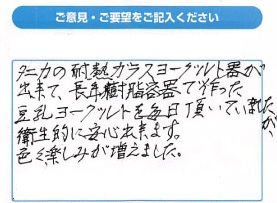 ご意見・ご要望をご記入ください
タニカの耐熱ガラスヨーグルト器が
出来て、長年樹脂容器で作った
豆乳ヨーグルトを毎日頂いていましたが、
衛生的に安心出来ます。
色々楽しみが増えました。